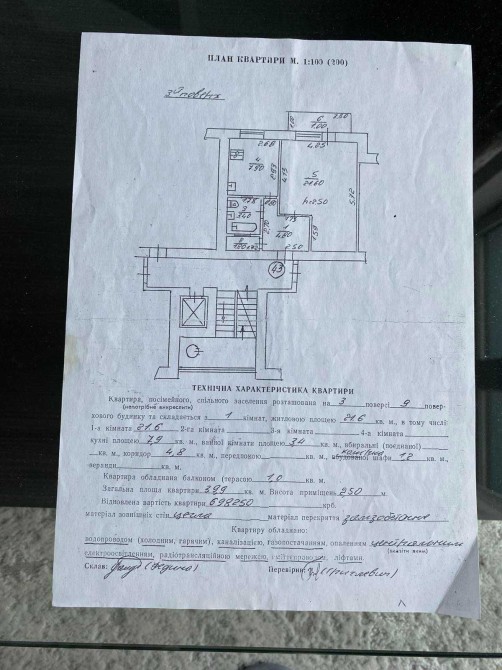 ПЛАН КВАРТИРИ М. 1:100 (200)
3й поверх
6
1,00
2.68
4.05
4
7.90
2.93
4.13
5
21.60
h=2.50
5.12
2
3.40
2.70
1.75
1
4.80
1.59
2.50
43
ТЕХНІЧНА ХАРАКТЕРИСТИКА КВАРТИРИ
Квартира, посімейного, спільного заселення розташована на 3 поверсі 9 повер-
(непотрібне викреслити)
хового будинку та складається з 1 кімнат, житловою площею 21.6 кв. м, в тому числі:
1-а кімната 21.6 2-га кімната 3-я кімната 4-а кімната
кухні площею 7,9 кв. м, ванної кімнати площею 3,4 кв. м, вбиральні (поєднаної)
кв. м, коридор 4,8 кв. м, передпокою кв. м, вбудованої шафи 1,2 кв. м,
веранди кв. м.
Квартира обладнана балконом (терасою) 1,0 кв. м.
Загальна площа квартири 39,9 кв. м. Висота приміщень 2.50 м.
Відновлена вартість квартири 699250 крб.
матеріал зовнішніх стін цегла матеріал перекриття залізобетонне
Квартиру обладнано:
водопроводом (холодним, гарячим), каналізацією, газопостачанням, опаленням центральним
(вказати яким)
електроосвітленням, радіотрансляційною мережею, сміттєпроводом, ліфтами.
Склав: Перевірив: